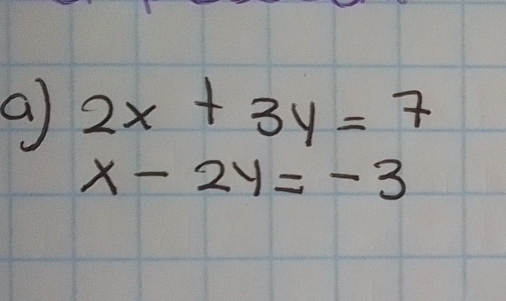 a) 2x + 3y = 7
x - 2y = -3